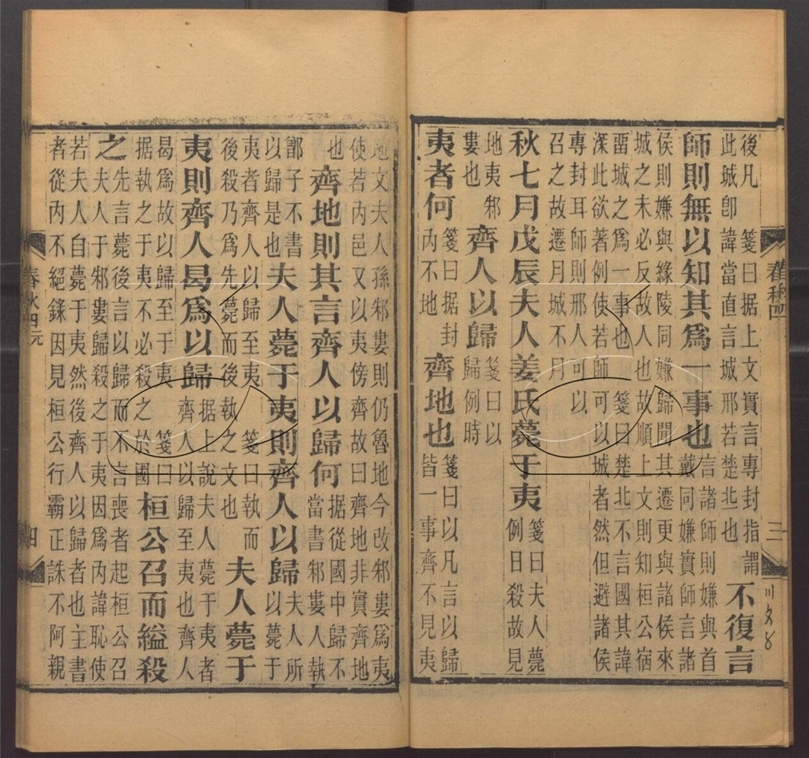 後凡　箋曰据上文實言專封指謂
此城卽諱當直言城邢若楚北也
不復言
師則無以知其爲一事也
言諸師則嫌與首
戴同嫌實師言諸
侯則嫌與緣陵同嫌歸聞其遷更與諸侯來
城之未必反故人也故順上文則知桓公宿
畱城之爲一事也　箋曰楚北不言國其諱
深此欲著例使若師可以城者然但避諸侯
專封耳師則邢人可以
召之故遷月城不月
秋七月戊辰夫人姜氏薨于夷
箋曰夫人薨
例日殺故見
地夷邾
婁也
齊人以歸
箋曰以
歸例時
夷者何
箋曰据封
内不地
齊地也
箋曰以凡言以歸
皆一事齊不見夷
春秋四
三
地文夫人孫邾婁則仍魯地今改邾婁爲夷
使若内邑又以夷傍齊故曰齊地非實齊地
也
齊地則其言齊人以歸何
据從國中歸不
當書邾婁人執
鄫子不書
以歸是也
夫人薨于夷則齊人以歸
夫人所
以歸薨于
夷者齊人以歸至夷　箋曰執而
後殺乃爲先薨而後執之文也
夫人薨于
夷則齊人曷爲以歸
据上說夫人薨于夷者
齊人以歸至夷也齊人
曷爲故以歸至于夷　箋曰
据執之于夷不必殺之於國
桓公召而縊殺
之
先言薨後言以歸而不言喪者起桓公召
夫人于邾婁歸殺之于夷因爲内諱恥使
若夫人自薨于夷然後齊人以歸者也主書
者從内不絕錄因見桓公行霸正誅不阿親
春秋四元
四